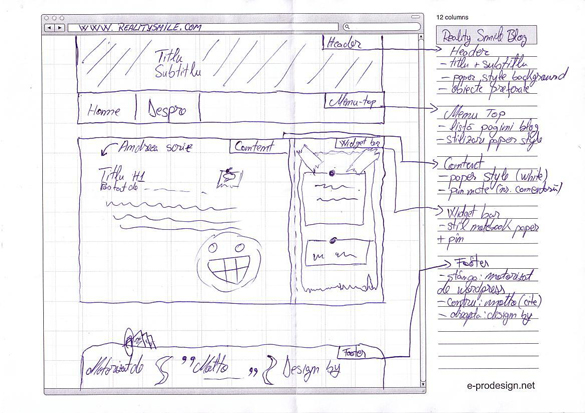 12 columns
www.REALITYSMILE.COM
Header
Titlu
Subtitlu
Home
Despre
Menu-top
Andreea scrie
Content
Widget bar
Titlu H1
Postat de
Motorizat de
"Motto"
Design by
Footer
Reality Smile Blog
Header
- titlu + subtitlu
- paper style background
- obiecte preferate
Menu Top
- listă pagini blog
- stilizare paper style
Content
- paper style (white)
- pin note (nr. comentarii)
Widget bar
- stil notebook paper
+ pin
Footer
- stânga: motorizat
de wordpress
- centru: motto (cite)
- dreapta: design by
e-prodesign.net